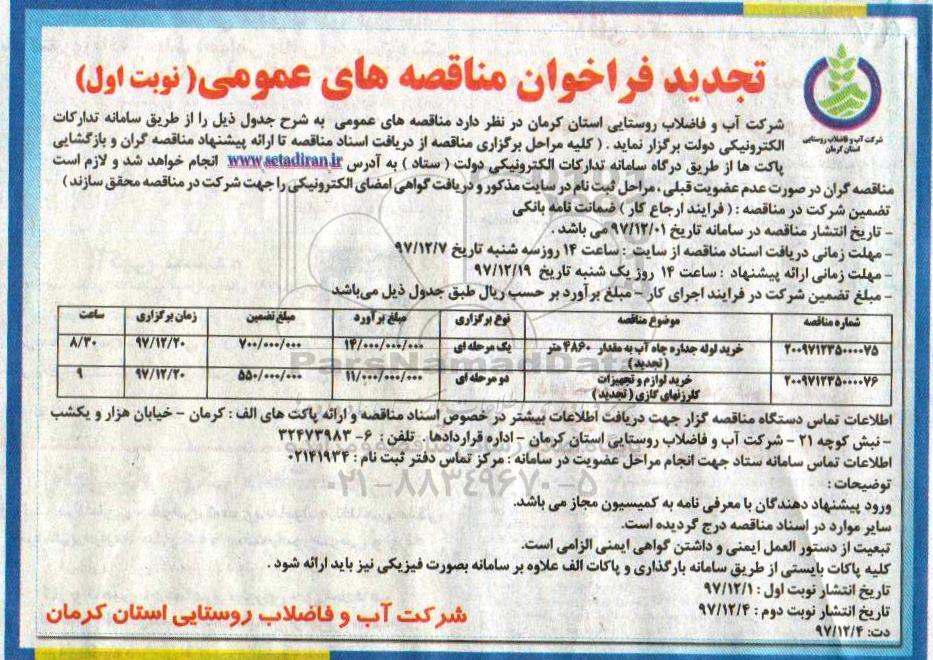 تجدید فراخوان مناقصه های عمومی( نوبت اول)
شرکت آب و فاضلاب روستایی
استان کرمان
شرکت آب و فاضلاب روستایی استان کرمان در نظر دارد مناقصه های عمومی به شرح جدول ذیل را از طریق سامانه تدارکات
الکترونیکی دولت برگزار نماید . ( کلیه مراحل برگزاری مناقصه از دریافت اسناد مناقصه تا ارائه پیشنهاد مناقصه گران و بازگشایی
پاکت ها از طریق درگاه سامانه تدارکات الکترونیکی دولت ( ستاد ) به آدرس www.setadiran.ir انجام خواهد شد و لازم است
مناقصه گران در صورت عدم عضویت قبلی ، مراحل ثبت نام در سایت مذکور و دریافت گواهی امضای الکترونیکی را جهت شرکت در مناقصه محقق سازند )
تضمین شرکت در مناقصه : ( فرایند ارجاع کار ) ضمانت نامه بانکی
- تاریخ انتشار مناقصه در سامانه تاریخ ۹۷/۱۲/۰۱ می باشد .
- مهلت زمانی دریافت اسناد مناقصه از سایت : ساعت ۱۴ روزسه شنبه تاریخ ۹۷/۱۲/۷
- مهلت زمانی ارائه پیشنهاد : ساعت ۱۴ روز یک شنبه تاریخ ۹۷/۱۲/۱۹
- مبلغ تضمین شرکت در فرایند اجرای کار - مبلغ برآورد بر حسب ریال طبق جدول ذیل می‌باشد
شماره مناقصه موضوع مناقصه نوع برگزاری مبلغ برآورد مبلغ تضمین زمان برگزاری ساعت
۲۰۰۹۷۱۲۳۵۰۰۰۰۷۵ خرید لوله جداره چاه آب به مقدار ۴۸۶۰ متر یک مرحله ای ۱۴/۰۰۰/۰۰۰/۰۰۰ ۷۰۰/۰۰۰/۰۰۰ ۹۷/۱۲/۲۰ ۸/۳۰
(تجدید)
۲۰۰۹۷۱۲۳۵۰۰۰۰۷۶ خرید لوازم و تجهیزات دو مرحله ای ۱۱/۰۰۰/۰۰۰/۰۰۰ ۵۵۰/۰۰۰/۰۰۰ ۹۷/۱۲/۲۰ ۹
کلرزنهای گازی ( تجدید )
اطلاعات تماس دستگاه مناقصه گزار جهت دریافت اطلاعات بیشتر در خصوص اسناد مناقصه و ارائه پاکت های الف : کرمان - خیابان هزار و یکشب
- نبش کوچه ۲۱ - شرکت آب و فاضلاب روستایی استان کرمان - اداره قراردادها . تلفن : ۶- ۳۲۴۷۳۹۸۳
اطلاعات تماس سامانه ستاد جهت انجام مراحل عضویت در سامانه : مرکز تماس دفتر ثبت نام : ۰۲۱۴۱۹۳۴
توضیحات :
ورود پیشنهاد دهندگان با معرفی نامه به کمیسیون مجاز می باشد.
سایر موارد در اسناد مناقصه درج گردیده است.
تبعیت از دستور العمل ایمنی و داشتن گواهی ایمنی الزامی است.
کلیه پاکات بایستی از طریق سامانه بارگذاری و پاکات الف علاوه بر سامانه بصورت فیزیکی نیز باید ارائه شود .
تاریخ انتشار نوبت اول : ۹۷/۱۲/۱
تاریخ انتشار نوبت دوم : ۹۷/۱۲/۴
دت: ۹۷/۱۲/۴
شرکت آب و فاضلاب روستایی استان کرمان
ParsNamadData
۰۲۱-۸۸۳۴۹۶۷۰-۵